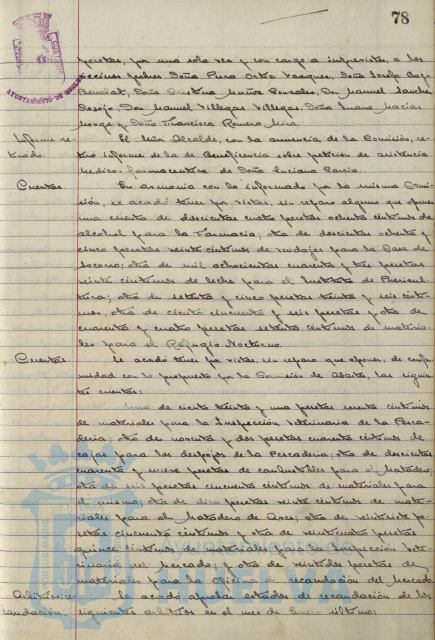 78
pesetas, por una sola vez y con cargo a imprevistos, a los
vecinos pobres Doña Pura Ortiz Vazquez, Doña Josefa
Doña Cristina Muñoz Gonzalez, Don Manuel Sanchez
Don Manuel Villegas Villegas, Doña Juana Macias
Monge y Doña Francisca Romero Mira
Informe re-
tirado.
El Señor Alcalde, con la anuencia de la Comisión, re-
tiró informe de la de Beneficencia sobre petición de asistencia
Médico-farmaceutica de Doña Luciana Garcia.
Cuentas.
En armonia con lo informado por la misma Comi-
sión, se acordó tener por vistas, sin reparo alguno que oponer
una cuenta de doscientas cuatro pesetas ochenta centimos de
alcohol para la Farmacia; otra de doscientas ochenta y
cinco pesetas veinte centimos de vendajes para la Casa de
Socorro; otra de mil ochocientas cuarenta y tres pesetas
veinte centimos de leche para el Instituto de Puericul-
tura; otra de setenta y cinco pesetas treinta y seis centi-
mos, otra de ciento cincuenta y seis pesetas y otra de
cuarenta y cuatro pesetas setenta centimos de materia-
les para el Refugio Nocturno.
Cuentas.
Se acordó tener por vistas, sin reparo que oponer, de confor-
midad con lo propuesto por la Comisión de Abastos, las siguien-
tes cuentas:
Una de ciento treinta y una pesetas sesenta centimos
de materiales para la Inspección Veterinaria de la Pesca-
deria; otra de noventa y dos pesetas cuarenta centimos de
cajas para los despojos de la Pescaderia; otra de doscientas
cuarenta y nueve pesetas de combustibles para el Matadero;
otra de seis pesetas cincuenta centimos de materiales para
el mismo; otra de diez pesetas veinte centimos de mate-
riales para el Matadero de Aves; otra de veintisiete pe-
setas cincuenta centimos y otra de veinticuatro pesetas
quince centimos de materiales para la Inspección Vete-
rinaria del Mercado; y otra de veintidos pesetas de
materiales para la Oficina de recaudación del Mercado
Arbitrios: re-
caudación.
Se acordó aprobar estados de recaudación de los
siguientes arbitrios en el mes de Enero último: